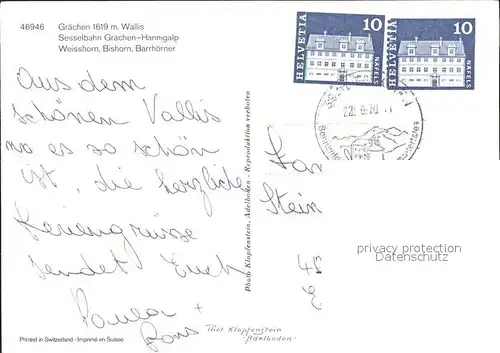 46946
Grächen 1619 m. Wallis
Sesselbahn Grächen-Hannigalp
Weisshorn, Bishorn, Barrhörner
HELVETIA 10 NÄFELS
HELVETIA 10 NÄFELS
22. 6.70
Aus dem
schönen Vallis
wo es so schön
ist, die herzliche
Feriengrüsse
sendet Euch
Paula +
Hans
Photo Klopfenstein, Adelboden - Reproduktion verboten
Fam
Stein
privacy protection
Datenschutz
Printed in Switzerland - Imprimé en Suisse
Phot Klopfenstein
"Adelboden"